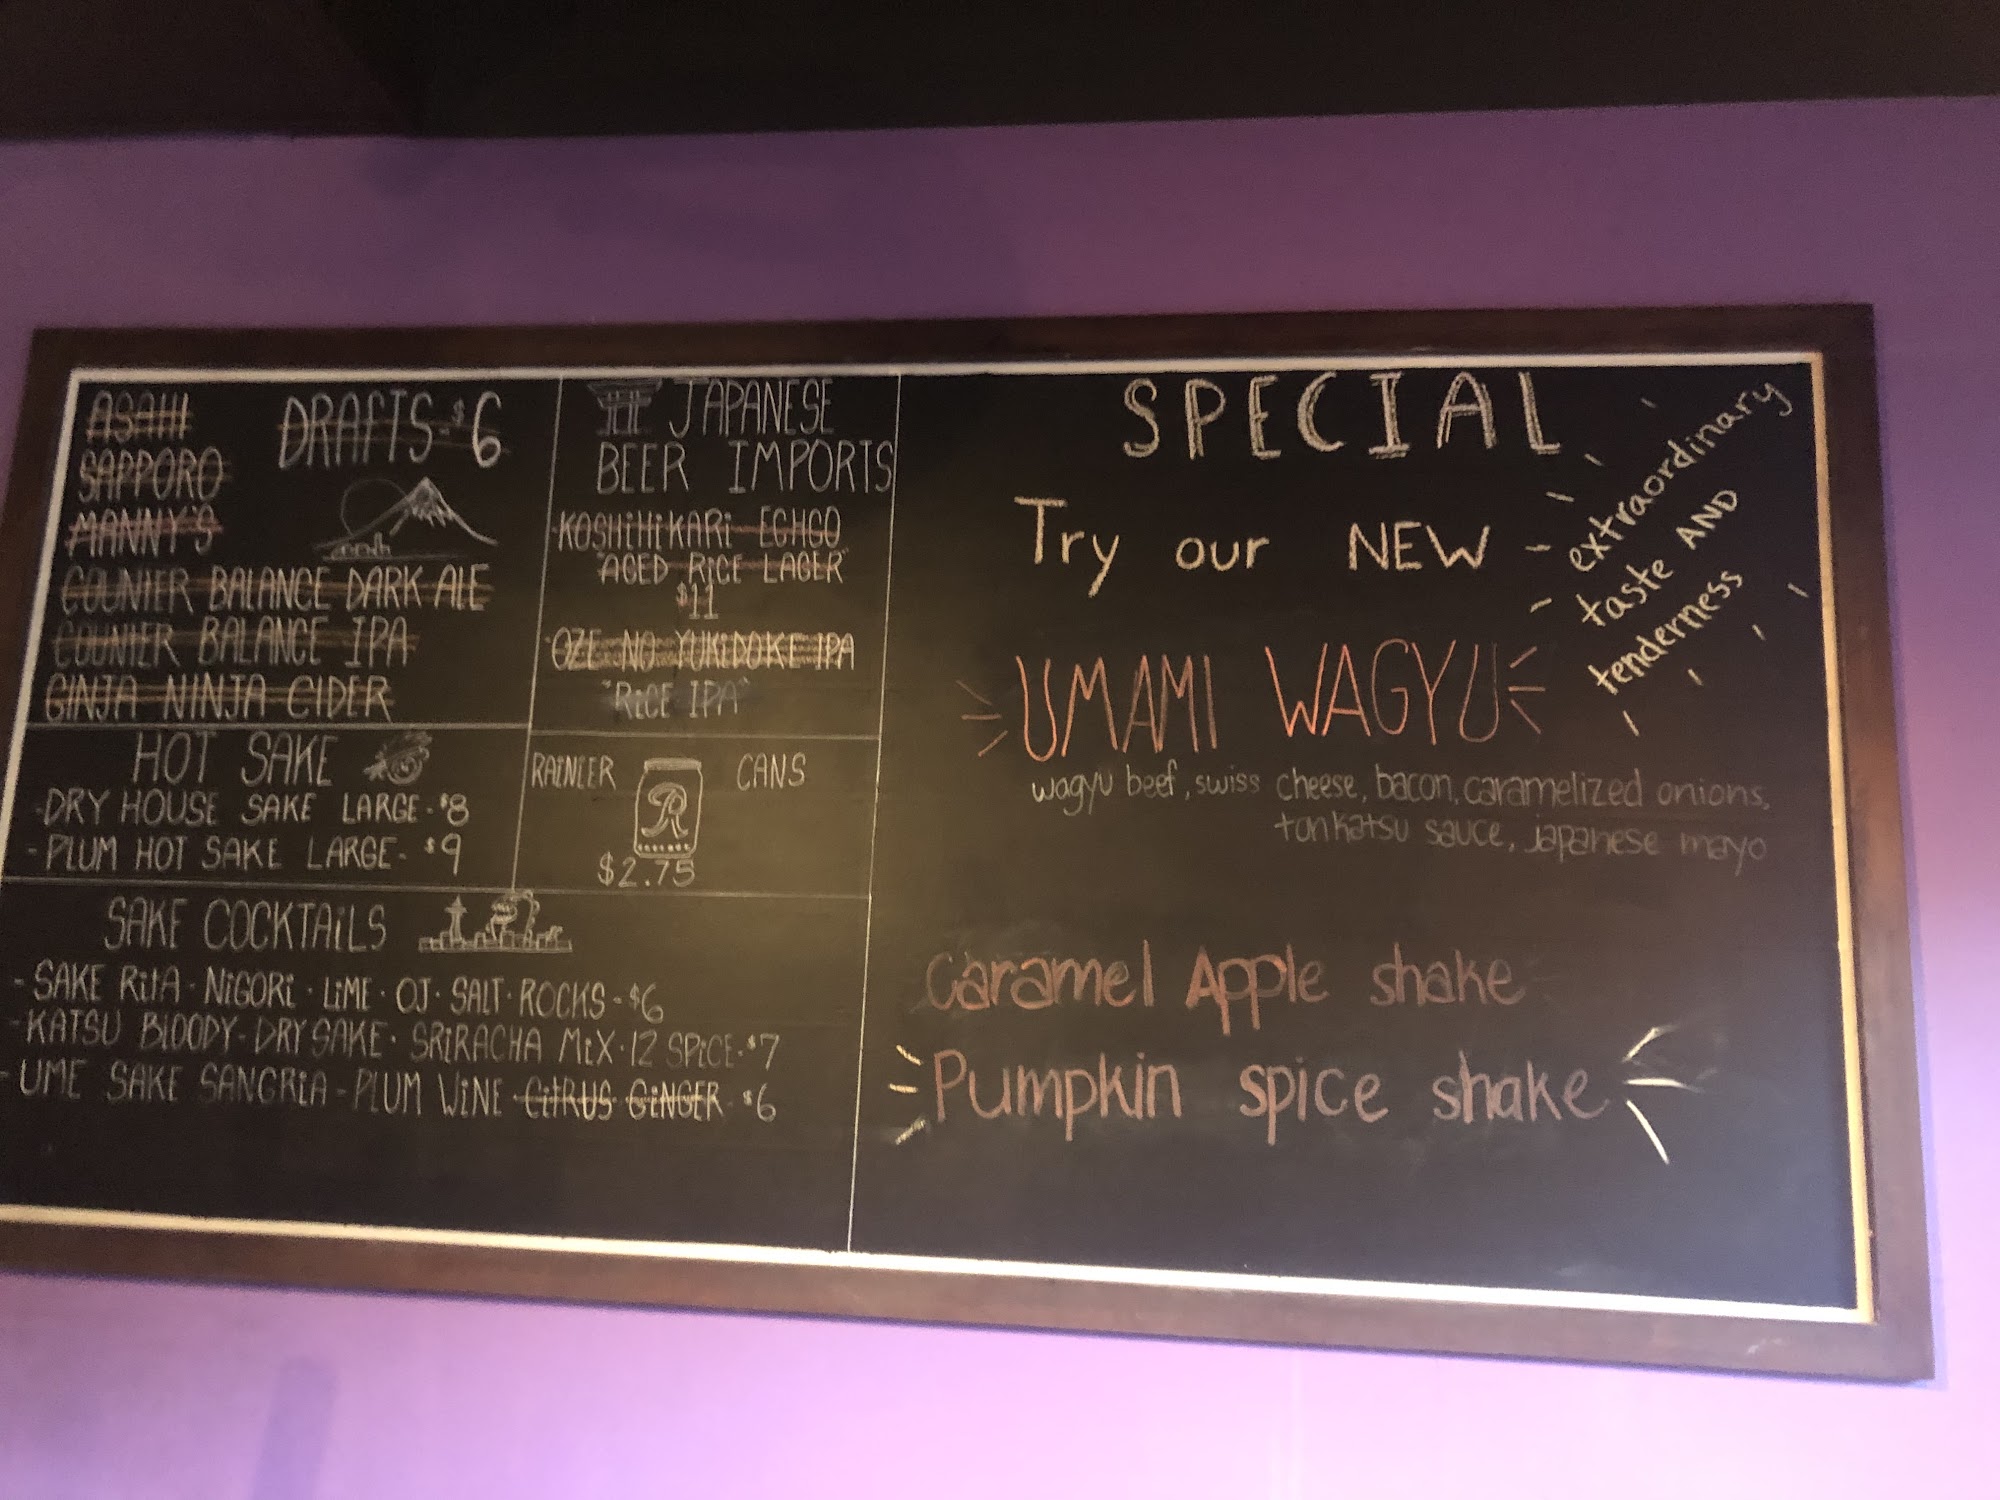 ASAHI
DRAFTS-$6
SAPPORO
MANNY'S
COUNTER BALANCE DARK ALE
COUNTER BALANCE IPA
GINJA NINJA CIDER
JAPANESE
BEER IMPORTS
KOSHIHIKARI ECHGO
"AGED RICE LAGER"
$11
OZE NO YUKIDOKE IPA
"RICE IPA"
HOT SAKE
-DRY HOUSE SAKE LARGE-$8
-PLUM HOT SAKE LARGE-$9
RAINIER CANS
R
$2.75
SAKE COCKTAILS
-SAKE RITA·NIGORI·LIME·OJ·SALT·ROCKS-$6
-KATSU BLOODY-DRY SAKE·SRIRACHA MIX·12 SPICE-$7
-UME SAKE SANGRIA-PLUM WINE CITRUS GINGER-$6
SPECIAL
Try our NEW
extraordinary
taste AND
tenderness
UMAMI WAGYU
wagyu beef, swiss cheese, bacon, caramelized onions,
tonkatsu sauce, japanese mayo
Caramel Apple shake
Pumpkin spice shake